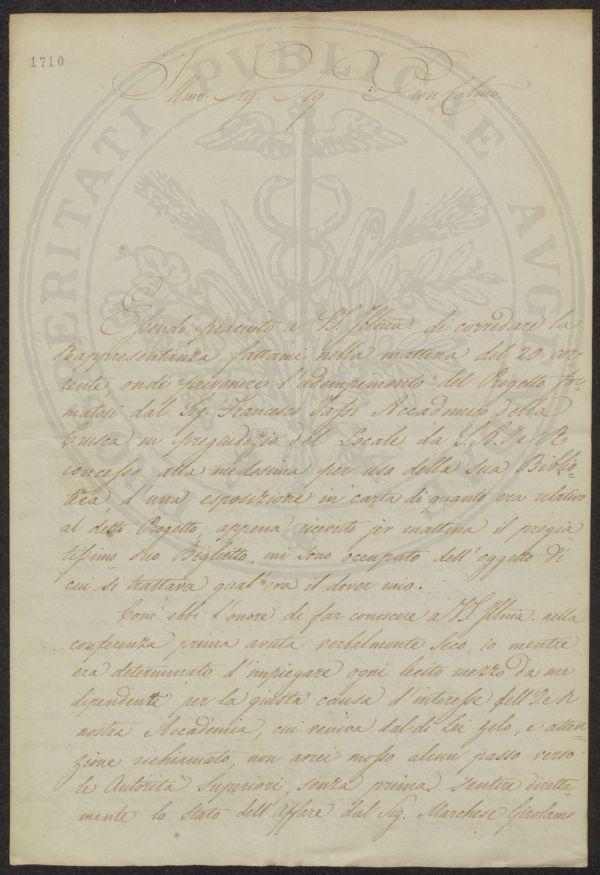 1710
Illmo. Sig. Sig. Prone Colmo.
PROSPERITATI PUBLICAE AUGENDAE
Essendo piaciuto a V.S. Illma. di corredare la
Rappresentanza fattami nella mattina del 20 cor-
rente, onde prevenire l'adempimento del Progetto for-
matosi dal Sig. Francesco Tassi Accademico della
Crusca in pregiudizio del Locale da S.A.I. e R.
concesso alla medesima per uso della sua Biblio-
teca, d'una esposizione in carta di quanto era relativo
al detto Progetto, appena ricevuto jer mattina il pregia
tissimo suo Biglietto, mi sono occupato dell'oggetto di
cui si trattava qual'era il dover mio.
Com'ebbi l'onore di far conoscere a V.S. Illma. nella
conferenza prima avuta verbalmente seco, io mentre
era determinato d'impiegare ogni lecito mezzo da me
dipendente per la giusta causa d'interesse dell'I. e R.
nostra Accademia, cui veniva dal di Lei zelo, e atten-
zione richiamato, non avrei mosso alcun passo verso
le Autorità Superiori, senza prima sentire diretta-
mente lo stato dell'Affare dal Sig. Marchese Girolamo